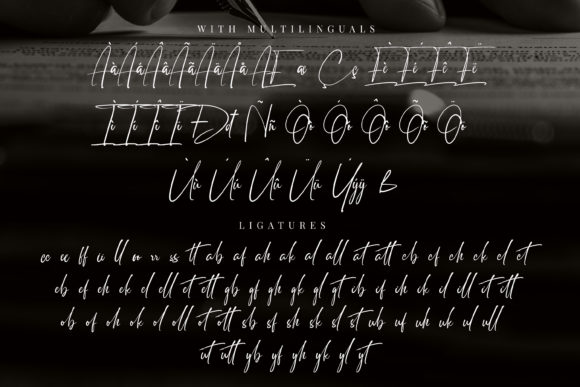 WITH MULTILINGUALS
Àà Áá Ââ Ãã Ää Åå Æ æ Ç ç Èè Éé Êê Ëë
Ìì Íí Îî Ïï Ðð Ññ Òò Óó Ôô Õõ Öö
Ùù Úú Ûû Üü Ýýÿ ß
LIGATURES
cc ee ff ii ll rr ss tt ab af ah ak al all at att cb cf ch ck cl ct
eb ef eh ek el ell et ett gb gf gh gk gl gt ib if ih ik il ill it itt
ob of oh ok ol oll ot ott sb sf sh sk sl st ub uf uh uk ul ull
ut utt yb yf yh yk yl yt